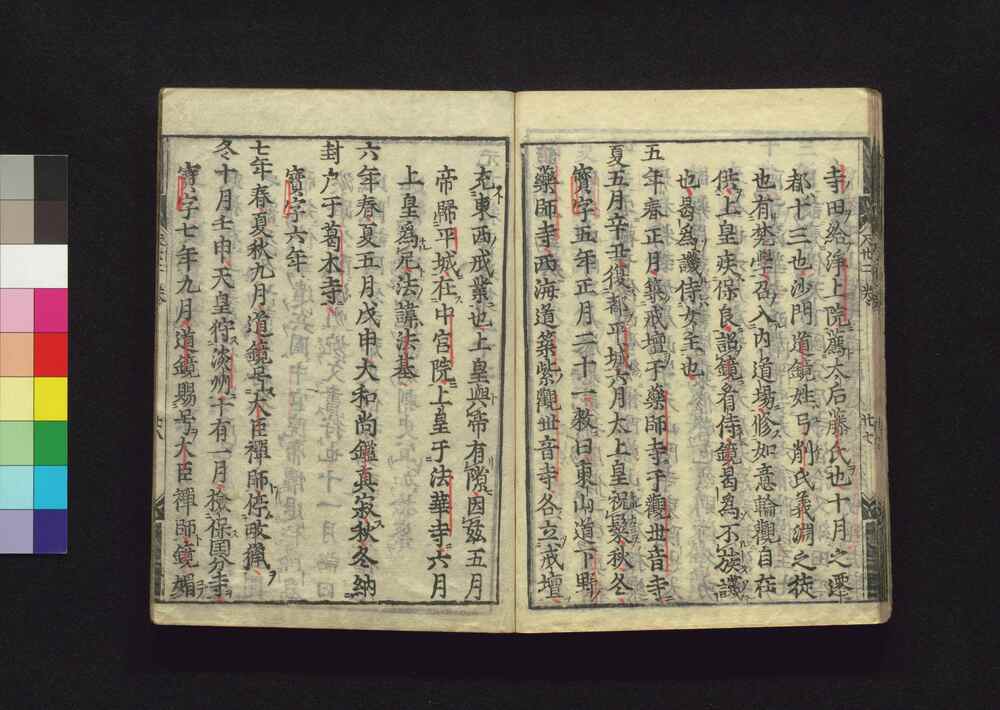 寺田給淨土院薦太后藤氏也十月之遷
都十三也沙門道鏡姓弓削氏義淵之徒
也有梵學召入內道場修如意輪觀自在
供上皇疾保良詔鏡看侍鏡曷爲不族譏
也曷爲譏侍女主也
五年春正月築戒壇于藥師寺于觀世音寺
夏五月辛丑復都平城六月太上皇祝髮秋冬
寶字五年正月二十一敕曰東山道下野
藥師寺西海道築紫觀世音寺各立戒壇
充東西戒業也上皇與帝有隙因玆五月
帝歸平城在中宮院上皇于法華寺六月
上皇爲尼法諱法基
六年春夏五月戊申大和尚鑑真寂秋冬納
封戶于葛木寺
寶字六年
七年春夏秋九月道鏡爲大臣禪師侫畋獵
冬十月壬申天皇狩淡州十有一月捡保国分寺
寶字七年九月道鏡賜号大臣禪師鏡媚
廿七
廿八